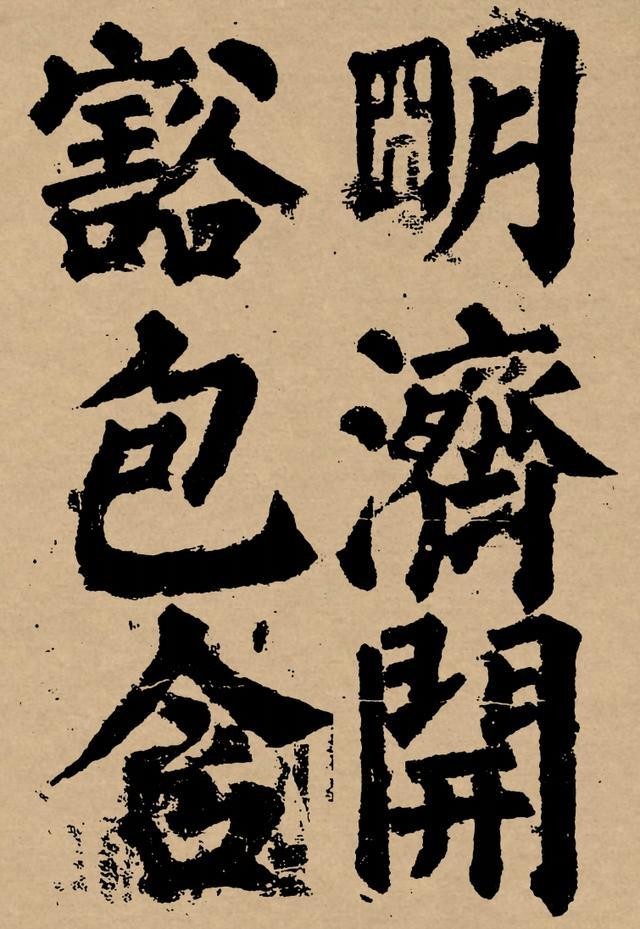 明濟開
豁包含